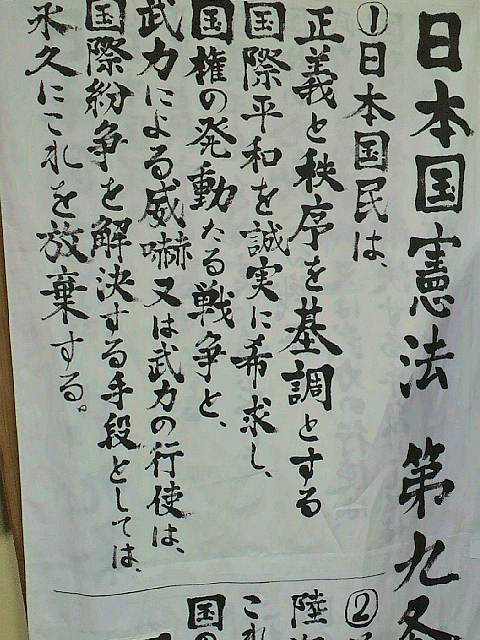 日本国憲法 第九条
①日本国民は、
正義と秩序を基調とする
国際平和を誠実に希求し、
国権の発動たる戦争と、
武力による威嚇又は武力の行使は、
国際紛争を解決する手段としては、
永久にこれを放棄する。
②
陸
これ
国の